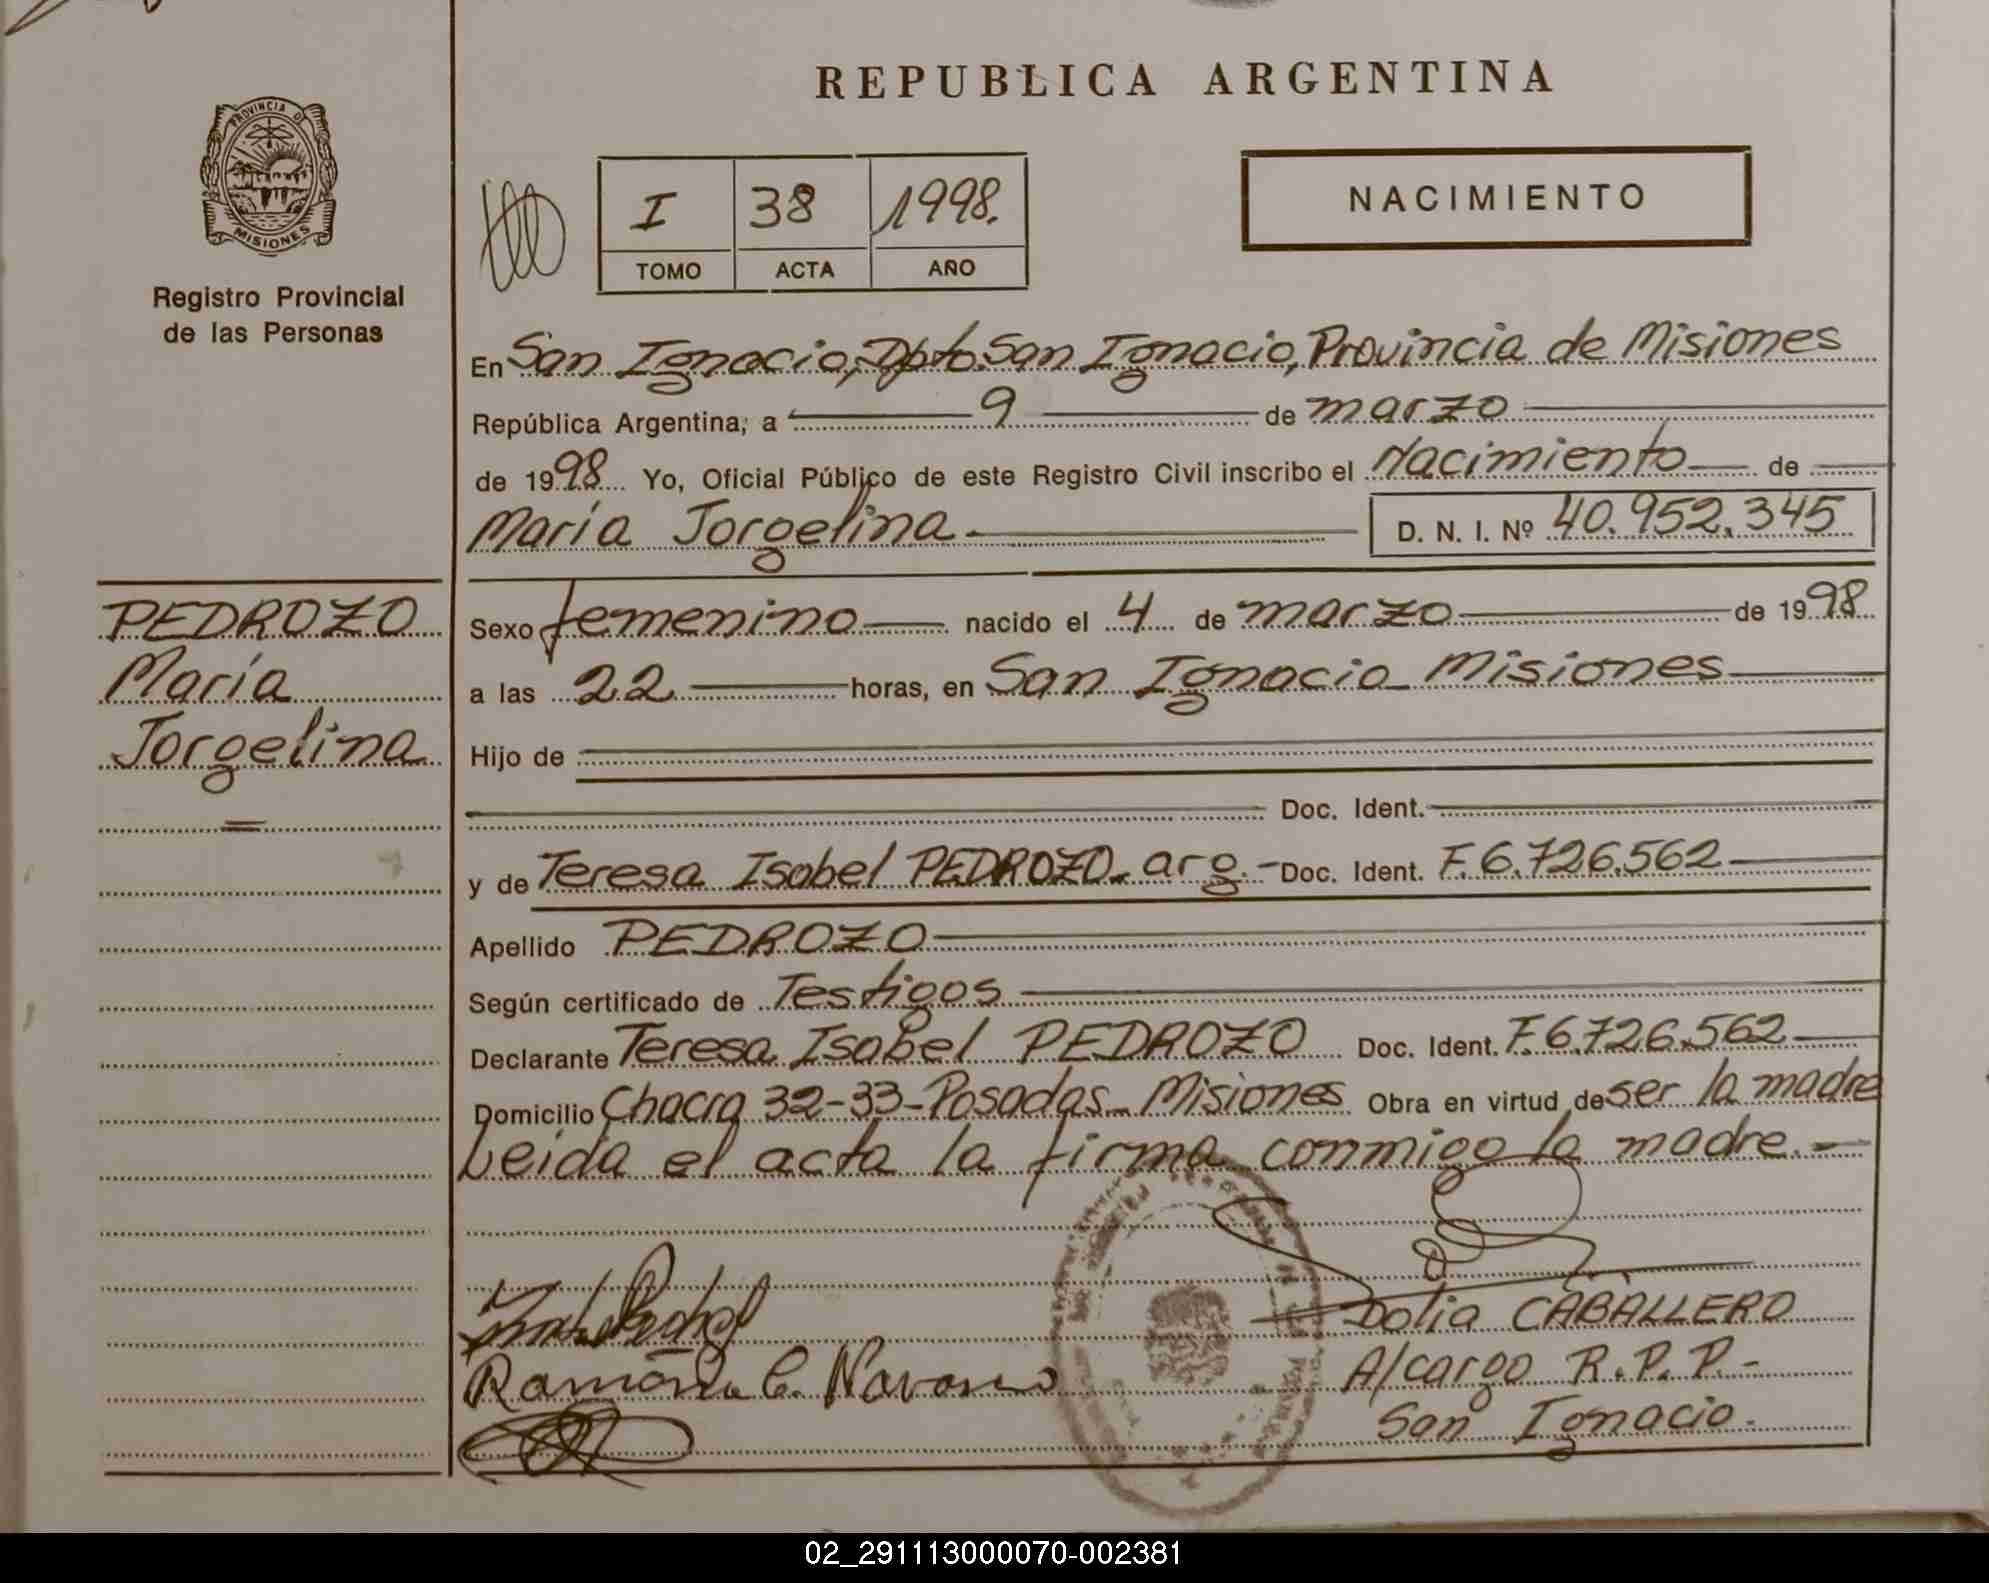 REPUBLICA ARGENTINA
PROVINCIA DE
MISIONES
Registro Provincial
de las Personas
I 38 1998.
TOMO ACTA AÑO
NACIMIENTO
En San Ignacio, Dpto. San Ignacio, Provincia de Misiones
República Argentina, a 9 de marzo
de 1998 Yo, Oficial Público de este Registro Civil inscribo el Nacimiento de
María Jorgelina D. N. I. Nº 40.952.345
PEDROZO
María
Jorgelina
Sexo femenino nacido el 4 de marzo de 1998
a las 22 horas, en San Ignacio Misiones
Hijo de
Doc. Ident.
y de Teresa Isabel PEDROZO. arg.- Doc. Ident. F. 6.726.562
Apellido PEDROZO
Según certificado de Testigos
Declarante Teresa Isabel PEDROZO Doc. Ident. F. 6.726.562
Domicilio Chacra 32-33-Posadas Misiones Obra en virtud de ser la madre
Leida el acta la firma conmigo la madre.-
Dolia CABALLERO
Ramona C. Navarro A/cargo R.P.P.-
San Ignacio.
02_291113000070-002381